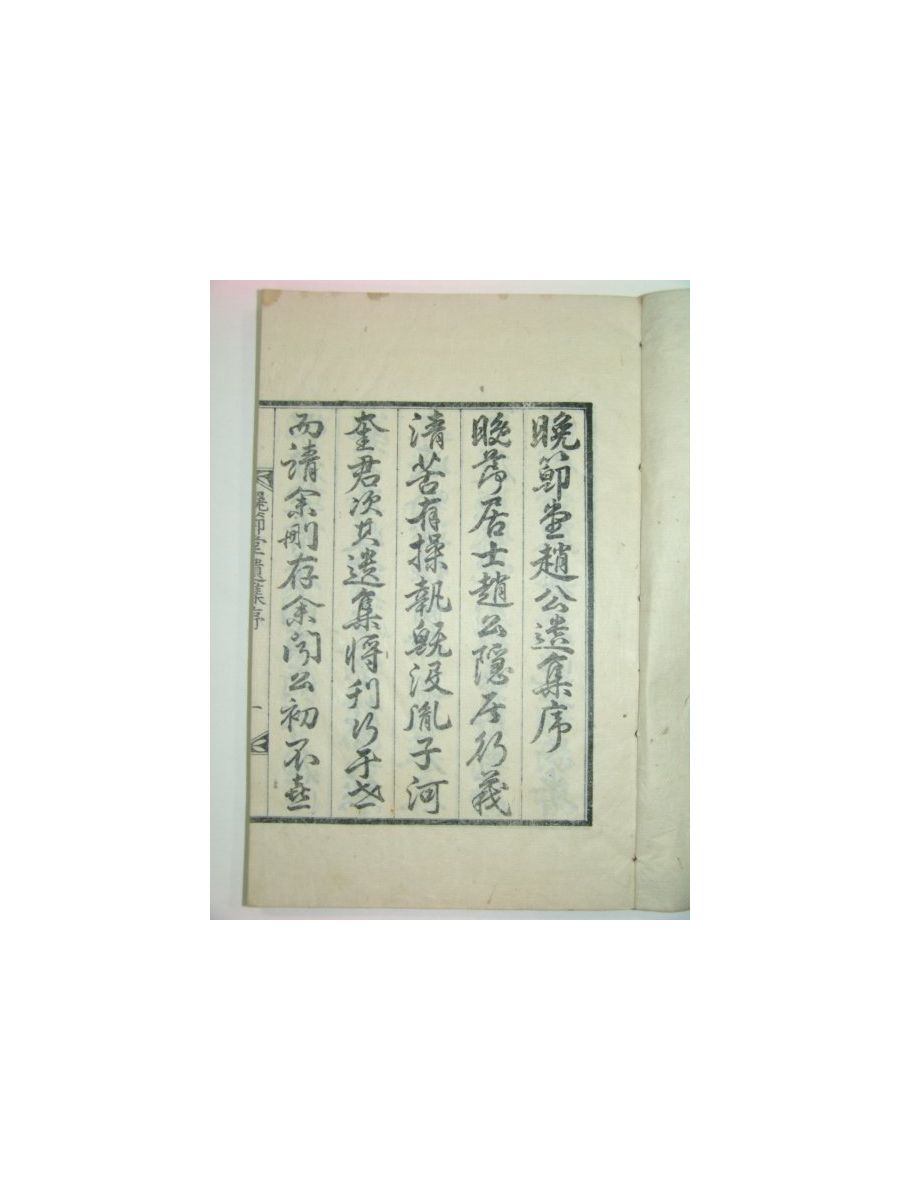 晩節堂趙公遺集序
晩節居士趙公隱居行義
清苦有操執旣沒胤子河
奎君次其遺集將刊行于世
而請余刪存余聞公初不喜
晩節堂遺集序 一